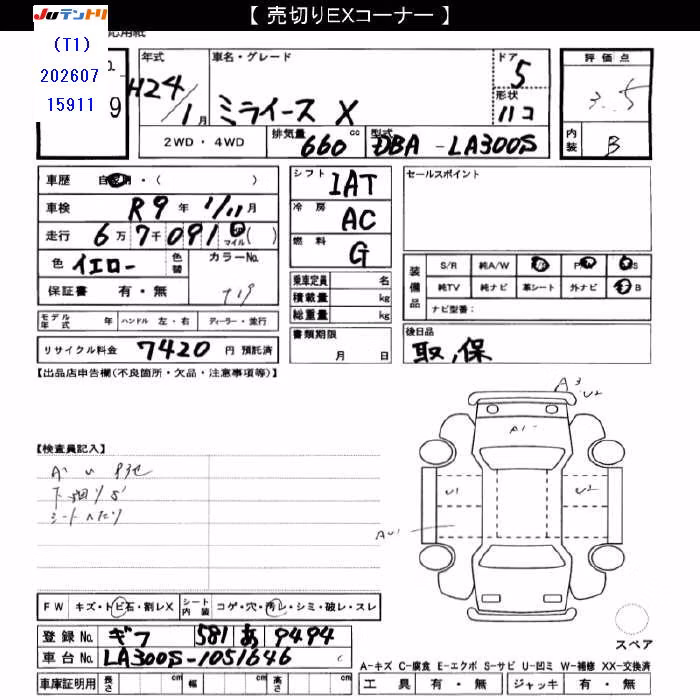 【 売切りEXコーナー 】
JUテントリ
(T1)
202607
15911
応用紙
年式 車名・グレード ドア 評価点
H24/1月 ミライース X 5 3.5
形状 ハコ
2WD・4WD 排気量 660 cc 型式 DBA-LA300S 内装 B
車歴 自家用・( )
車検 R9年 1/11月
走行 6万7千091 km マイル ( )
色 イエロー 色替 カラーNo.
保証書 有・無 T19
モデル年式 年 ハンドル 左・右 ディーラー・並行
リサイクル料金 7420 円 預託済
シフト IAT
冷房 AC
燃料 G
乗車定員 名
積載量 kg
総重量 kg
書類期限
月 日
セールスポイント
装備品 S/R 純A/W P/S
純TV 純ナビ 革シート 外ナビ B
ナビ型番:
後日品
取、保
【出品店申告欄(不良箇所・欠品・注意事項等)】
【検査員記入】
下廻りサビ
シートヘタリ
A3 U2
A1
U1 U2
AU1
FW キズ・トビ石・割レX シート内装 コゲ・穴・汚レ・シミ・破レ・スレ
登録No. ギフ 581 あ 9494
車台No. LA300S-1051646
車庫証明用 長さ cm 幅 cm 高さ cm
スペア
A-キズ C-腐食 E-エクボ S-サビ U-凹ミ W-補修 XX-交換済
工具 有・無 ジャッキ 有・無